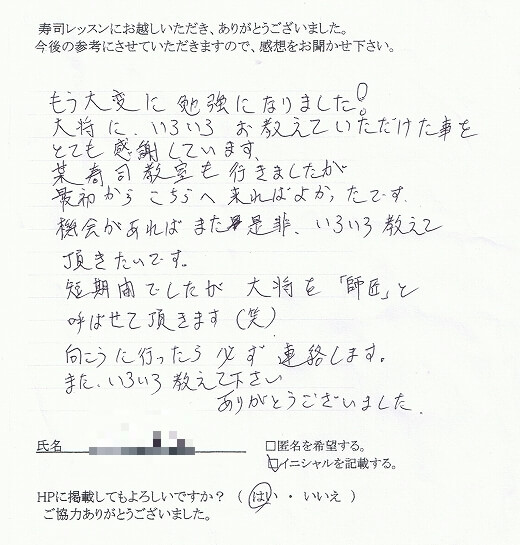 寿司レッスンにお越しいただき、ありがとうございました。
今後の参考にさせていただきますので、感想をお聞かせ下さい。
もう大変に勉強になりました!
大将に、いろいろお教えていただけた事を
とても感謝しています。
某寿司教室も行きましたが
最初からこちらへ来ればよかったです。
機会があればまた是非、いろいろ教えて
頂きたいです。
短期間でしたが大将を「師匠」と
呼ばせて頂きます(笑)
向こうに行ったら必ず連絡します。
また、いろいろ教えて下さい
ありがとうございました.
氏名
□匿名を希望する。
☑イニシャルを記載する。
HPに掲載してもよろしいですか? ( はい ・ いいえ )
ご協力ありがとうございました。